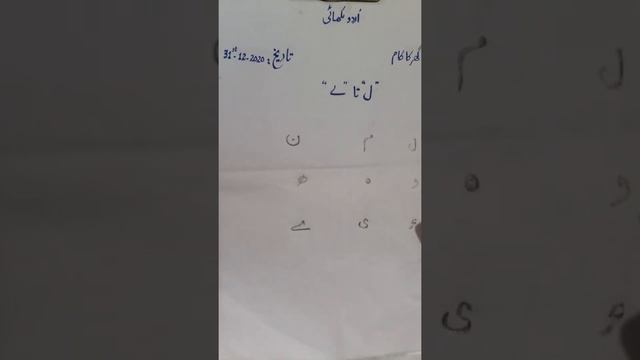 اُردو لکھائی
گھر کا کام
تاریخ: 31st-12-2020
"ل" تا "ے"
ل م ن
و ہ ھ
ء ی ے